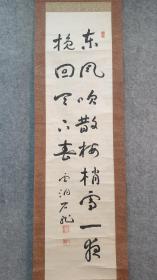 东风吹散梅梢雪一夜
挽回天下春